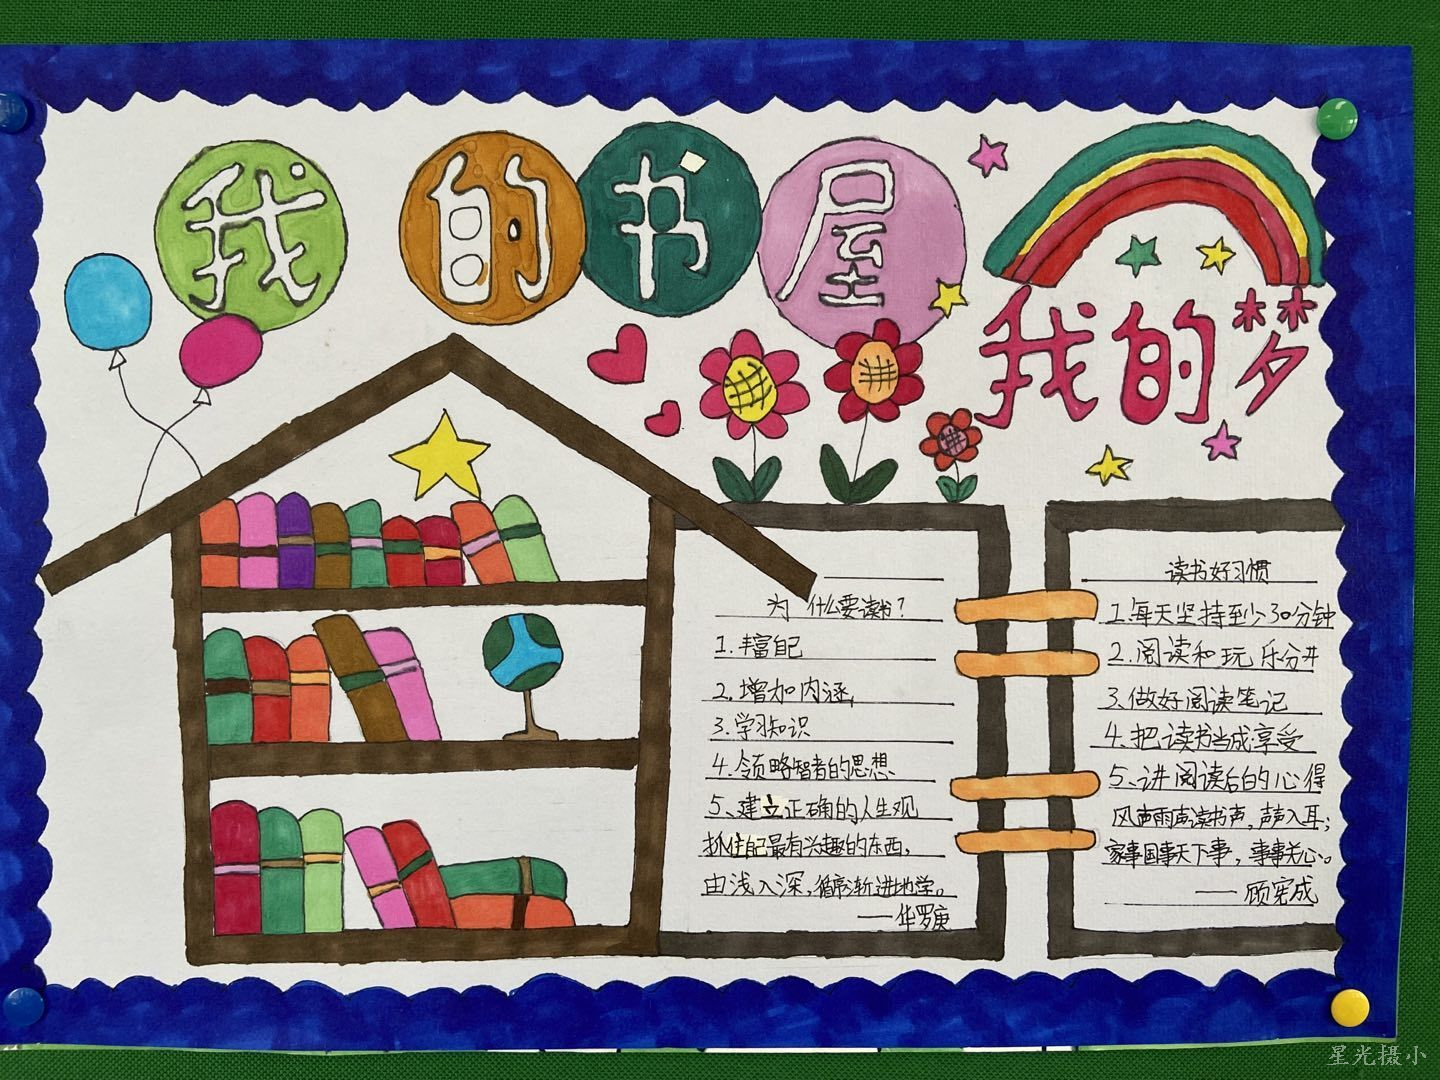 我的书屋
我的梦
为什么要读书?
1.丰富自己
2.增加内涵
3.学习知识
4.领略智者的思想
5、建立正确的人生观
抓住自己最有兴趣的东西,
由浅入深,循序渐进地学。
——华罗庚
读书好习惯
1.每天坚持至少30分钟
2.阅读和玩乐分开
3.做好阅读笔记
4.把读书当成享受
5、讲阅读后的心得
风声雨声读书声,声声入耳;
家事国事天下事,事事关心。
——顾宪成
星光摄小